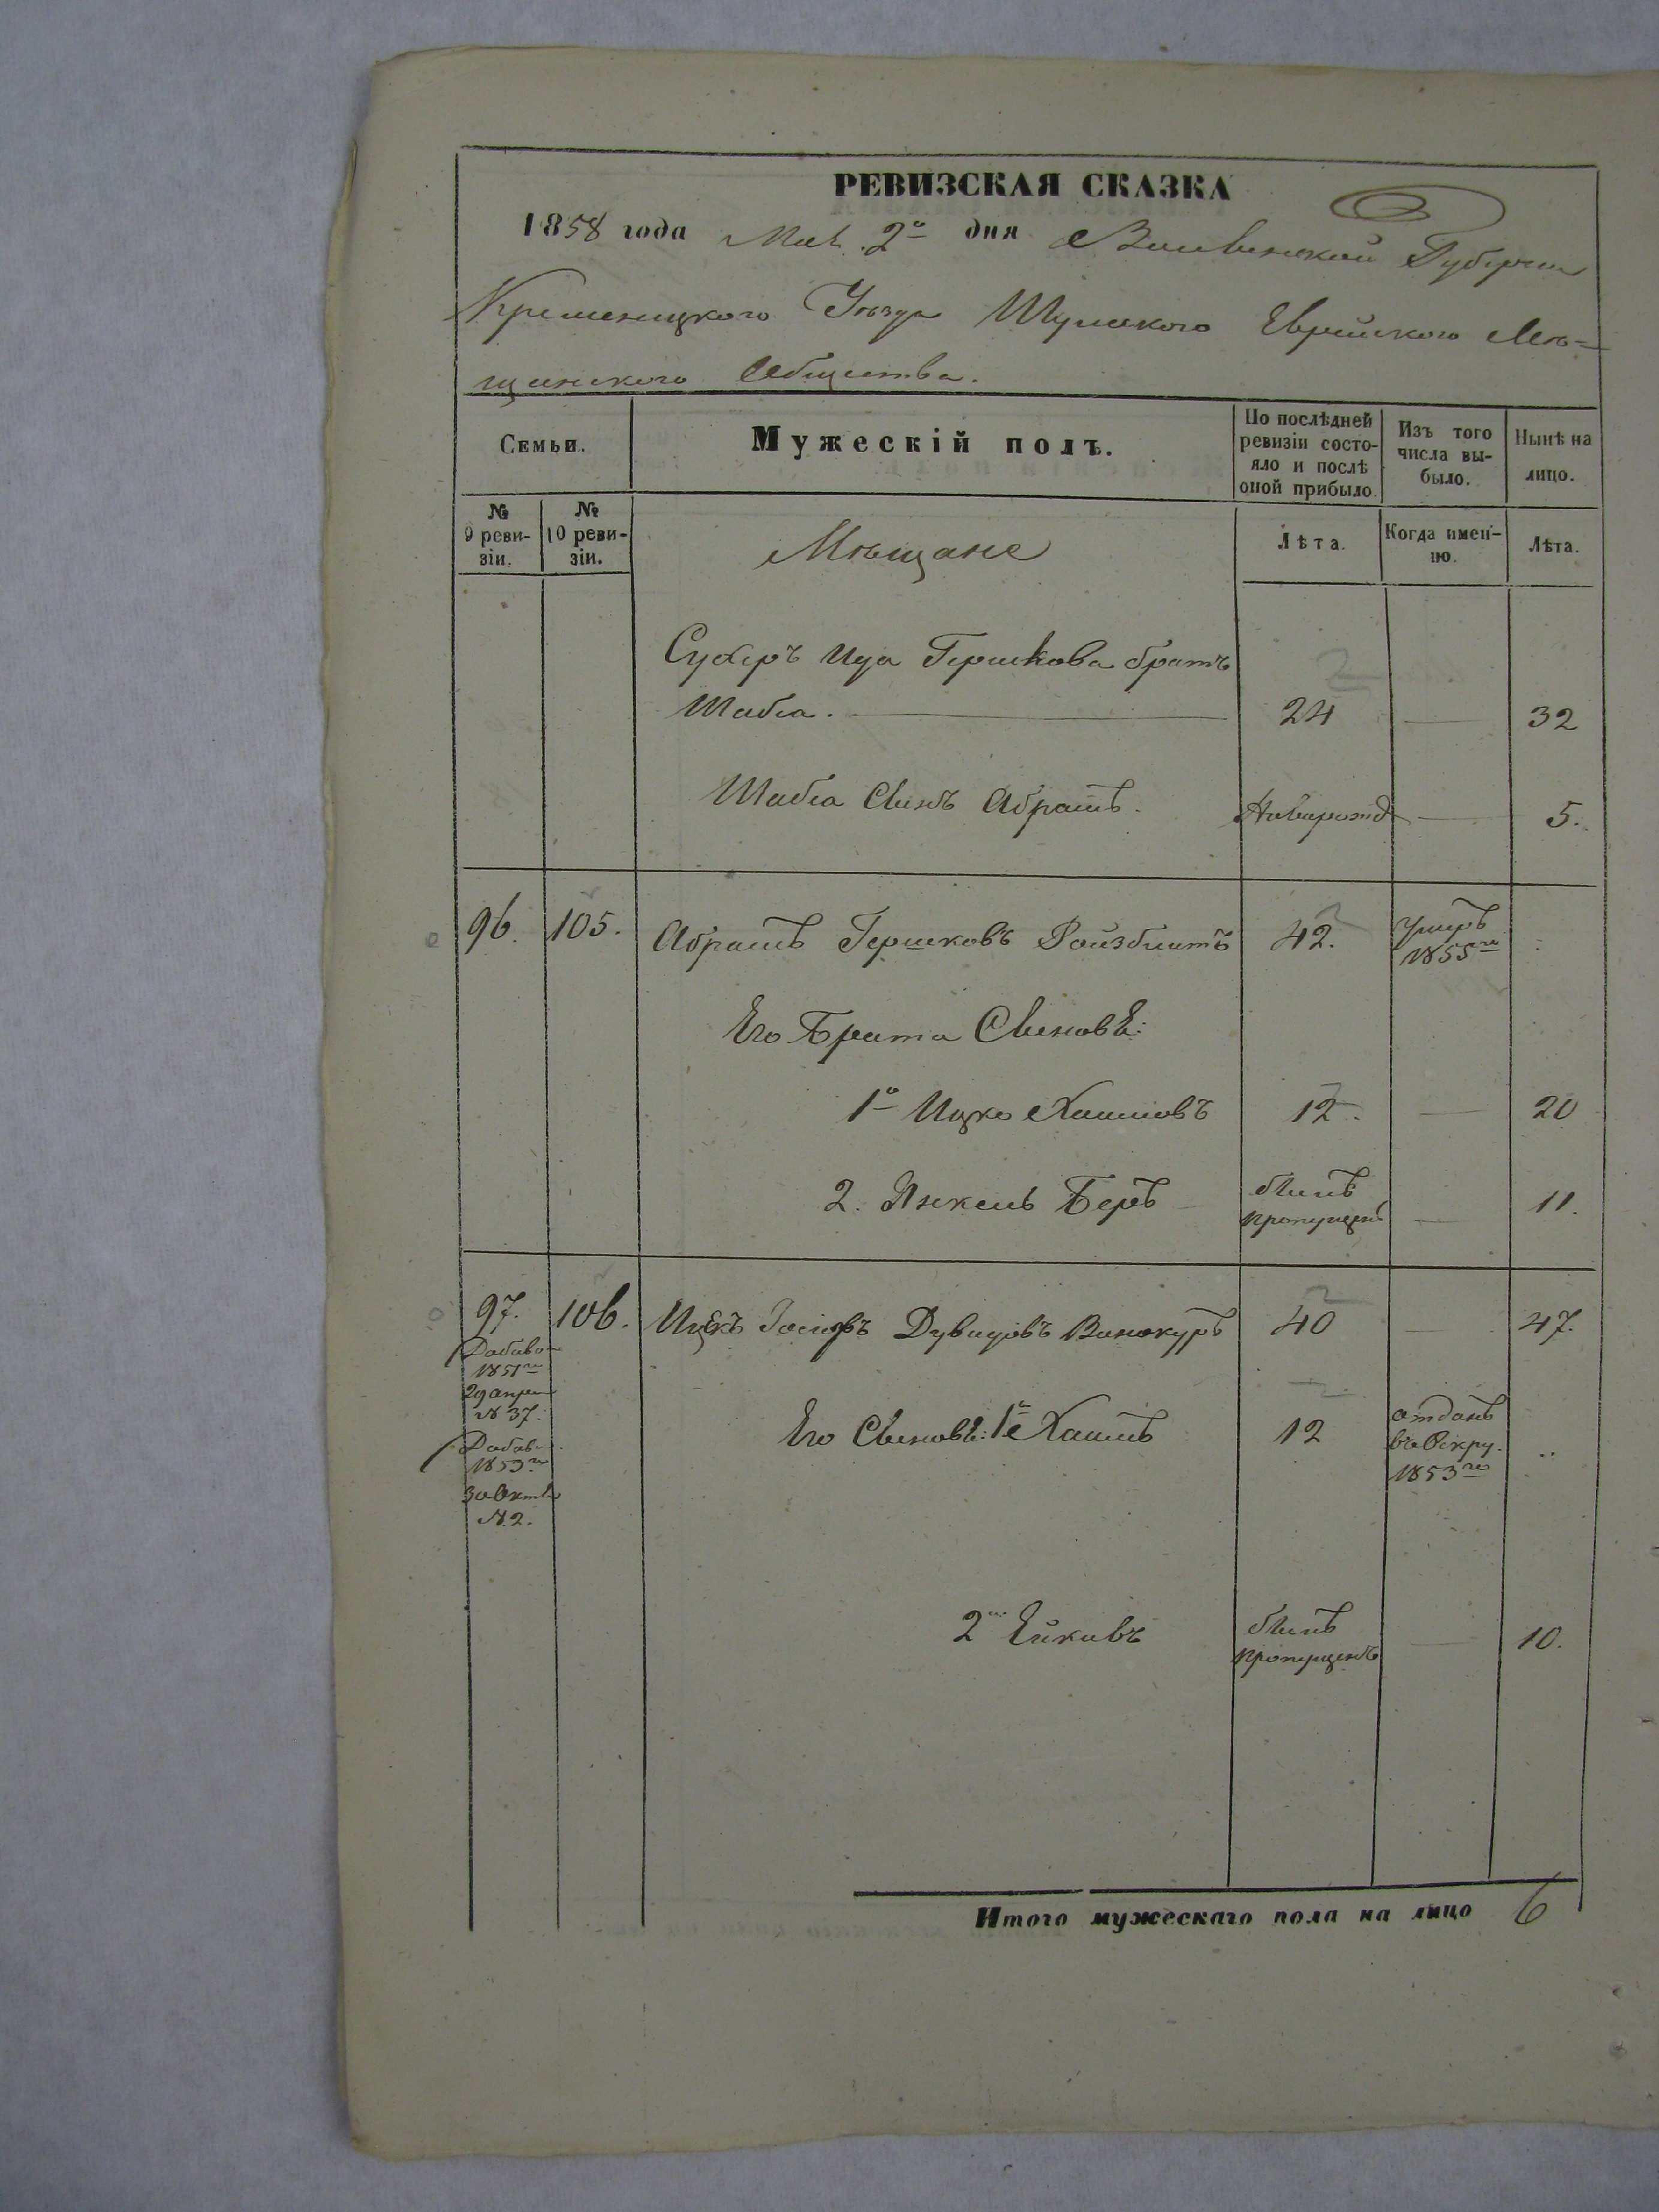 РЕВИЗСКАЯ СКАЗКА
1858 года Мая 2го дня Волынской Губерніи
Кременецкого Уѣзда Шумского Еврейского Мѣ=
щанского Общества.
Семьи.
Мужескій полъ.
По послѣдней ревизіи состо-
яло и послѣ
оной прибыло.
Изъ того
числа вы-
было.
Нынѣ на
лицо.
№
9 реви-
зіи.
№
10 реви-
зіи.
Мѣщане
Лѣта.
Когда имен-
но.
Лѣта.
Сухеръ Ица Гершкова братъ
Шабса. 24 — 32
Шабса Сынъ Абрамъ. Новорожд — 5.
96. 105. Абрамъ Гершковъ Ройзблитъ 42. Умеръ
1855го
Его Брата Сыновья:
1й Ицко Хаимовъ 12. — 20
2. Янкель Беръ былъ
пропущенъ — 11.
97. 106. Ицекъ Іосифъ Дувидовъ Винокуръ 40 — 47.
Добаво
1851го
29 апре
№ 37.
Добав
1853го
30 Октя
№ 2.
Его Сыновья: 1й Хаимъ 12 отданъ
въ Рекру.
1853го
2й Ейкивъ былъ
пропущенъ — 10.
Итого мужескаго пола на лицо 6